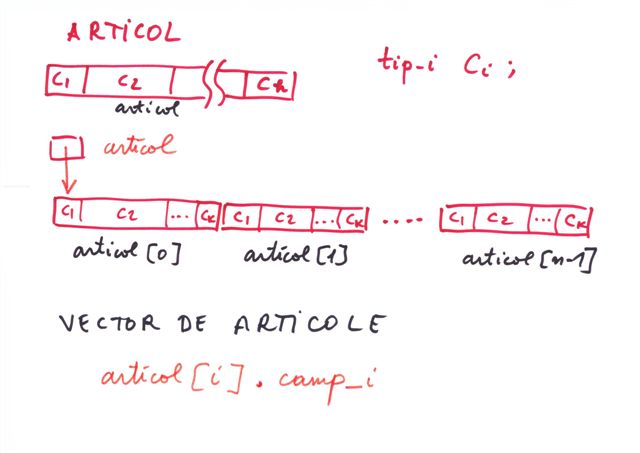 ARTICOL
C1 C2 Ck
tip-i Ci ;
articol
articol
C1 C2 ... Ck C1 C2 ... Ck .... C1 C2 ... Ck
articol [0] articol [1] articol [n-1]
VECTOR DE ARTICOLE
articol [i] . camp_i